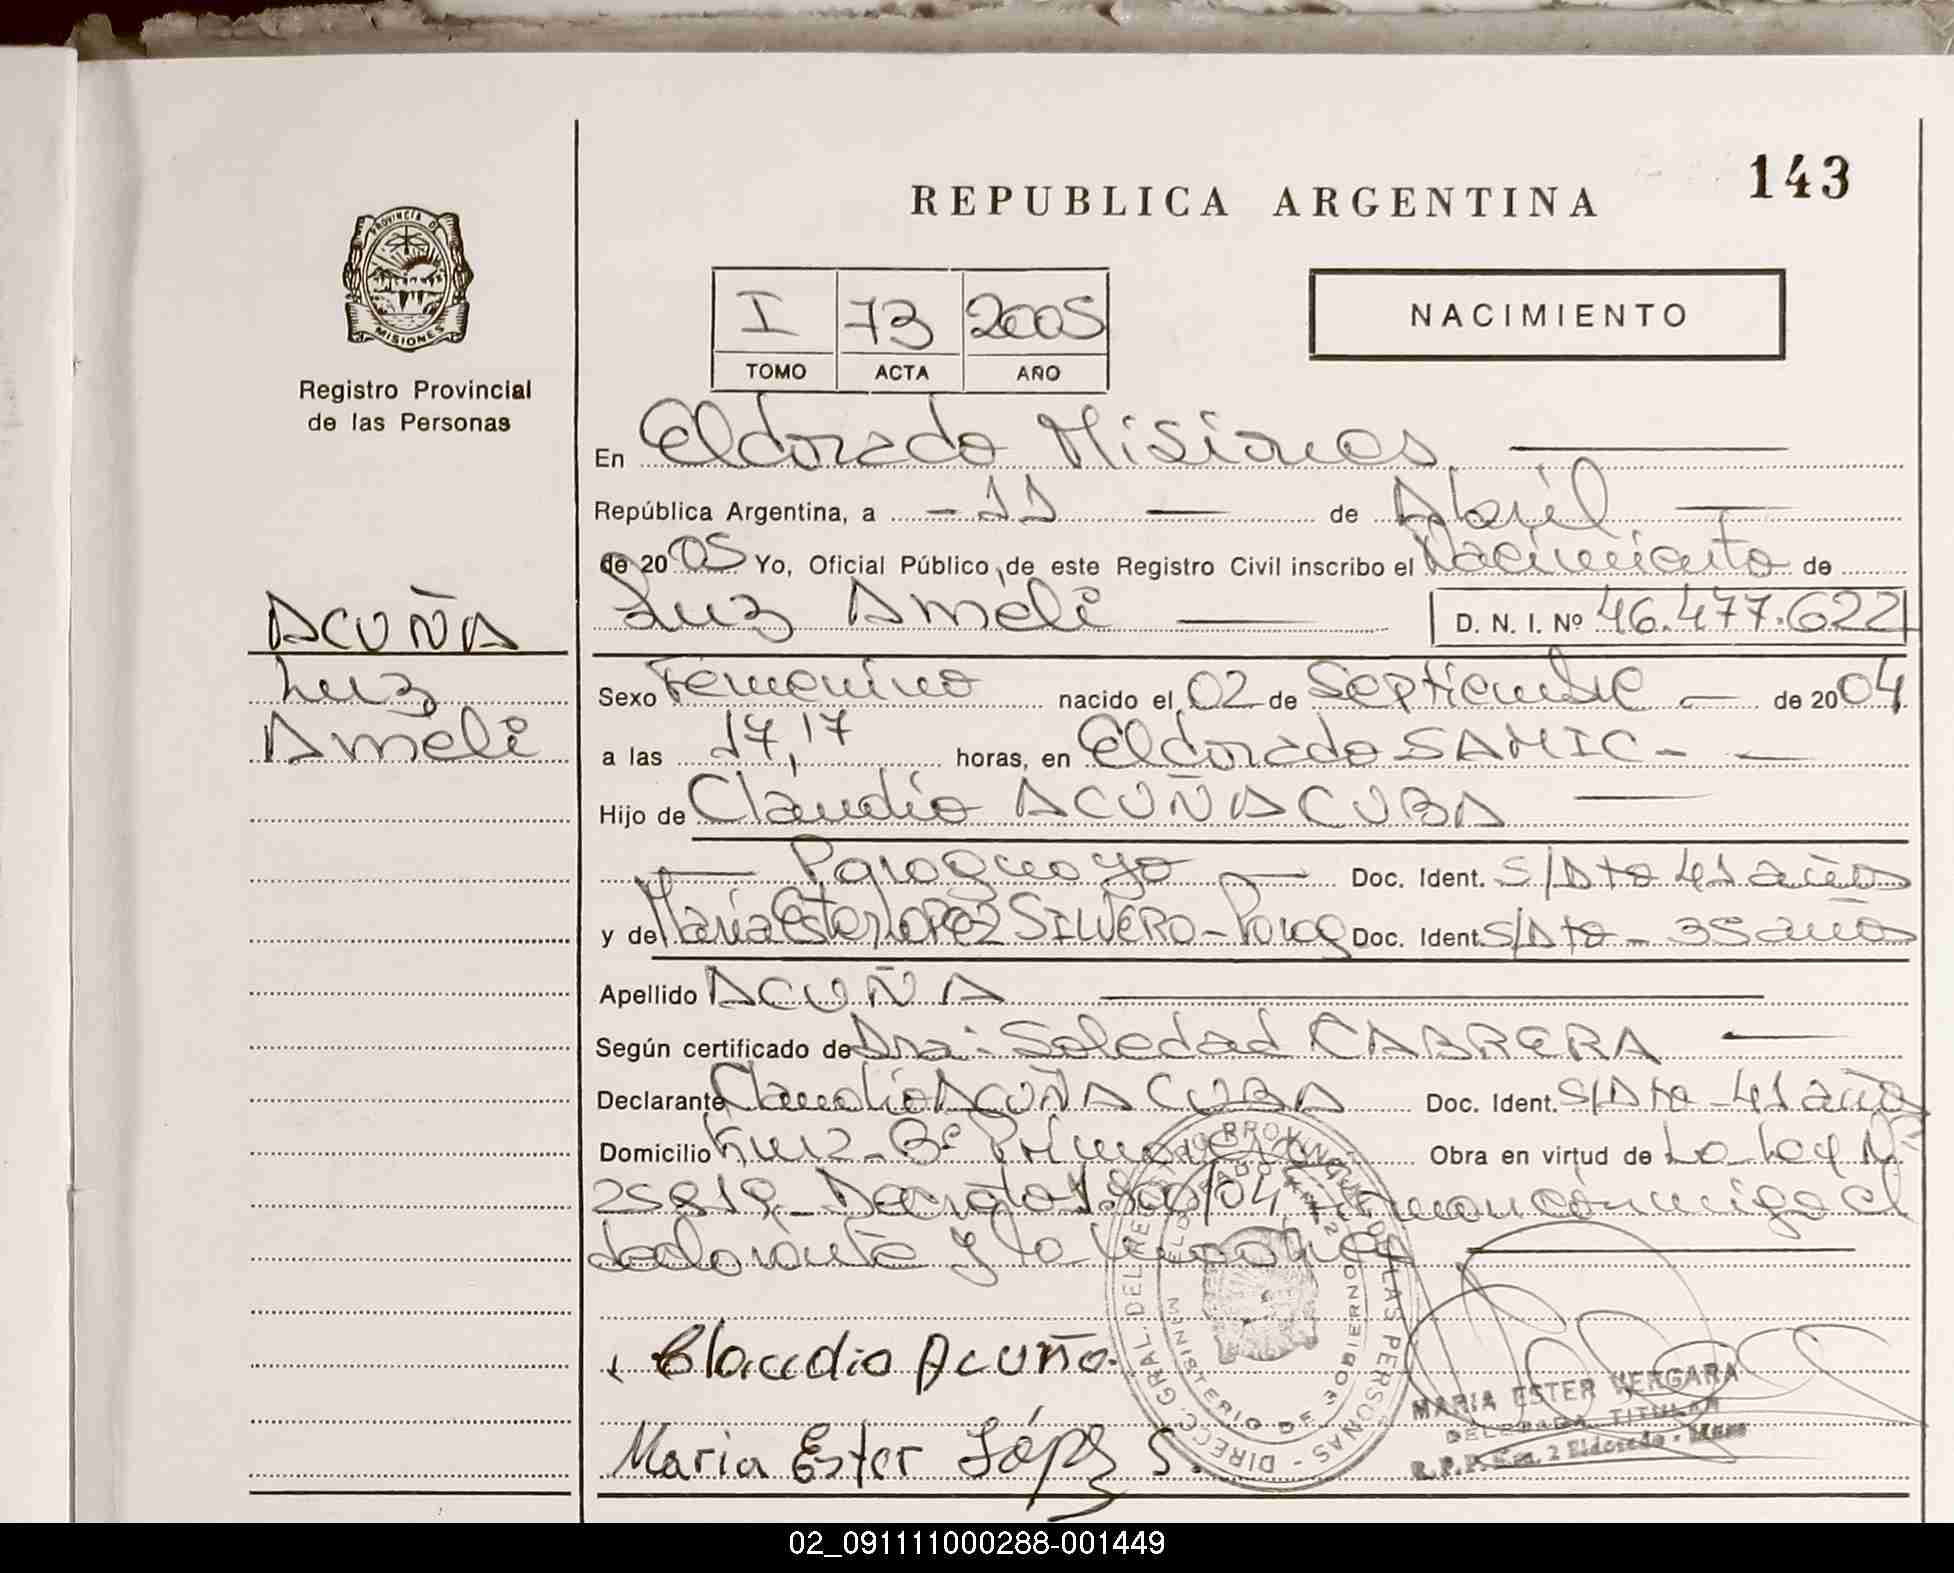 143
REPUBLICA ARGENTINA
PROVINCIA DE
MISIONES
Registro Provincial
de las Personas
NACIMIENTO
I 73 2005
TOMO ACTA AÑO
En Eldorado Misiones
República Argentina, a -11 de Abril
de 2005 Yo, Oficial Público de este Registro Civil inscribo el Nacimiento de
Luz Ameli D. N. I. Nº 46.477.622
ACUÑA
Luz
Ameli
Sexo Femenino nacido el 02 de Septiembre de 2004
a las 17,17 horas, en Eldorado SAMIC-
Hijo de Claudio ACUÑA CUBA
Paraguayo Doc. Ident. S/Dto 41 años
y de Maria Ester LOPEZ SILVERO - Parag Doc. Ident. S/Dto - 35 años
Apellido ACUÑA
Según certificado de Dra: Soledad CABRERA
Declarante Claudio ACUÑA CUBA Doc. Ident. S/Dto - 41 años
Domicilio Km 12 - Bº Primavera Obra en virtud de La Ley Nº
25819 - Decreto 1.800/04 Firman conmigo el
declarante y la madre
Claudio Acuña.
Maria Ester Lópz S.
DIRECC. GRAL. DEL REGISTRO PROVINCIAL DE LAS PERSONAS
MINISTERIO DE GOBIERNO
MARIA ESTER VERGARA
DELEGADA TITULAR
R.P.P. Km. 2 Eldorado - Mnes
02_091111000288-001449